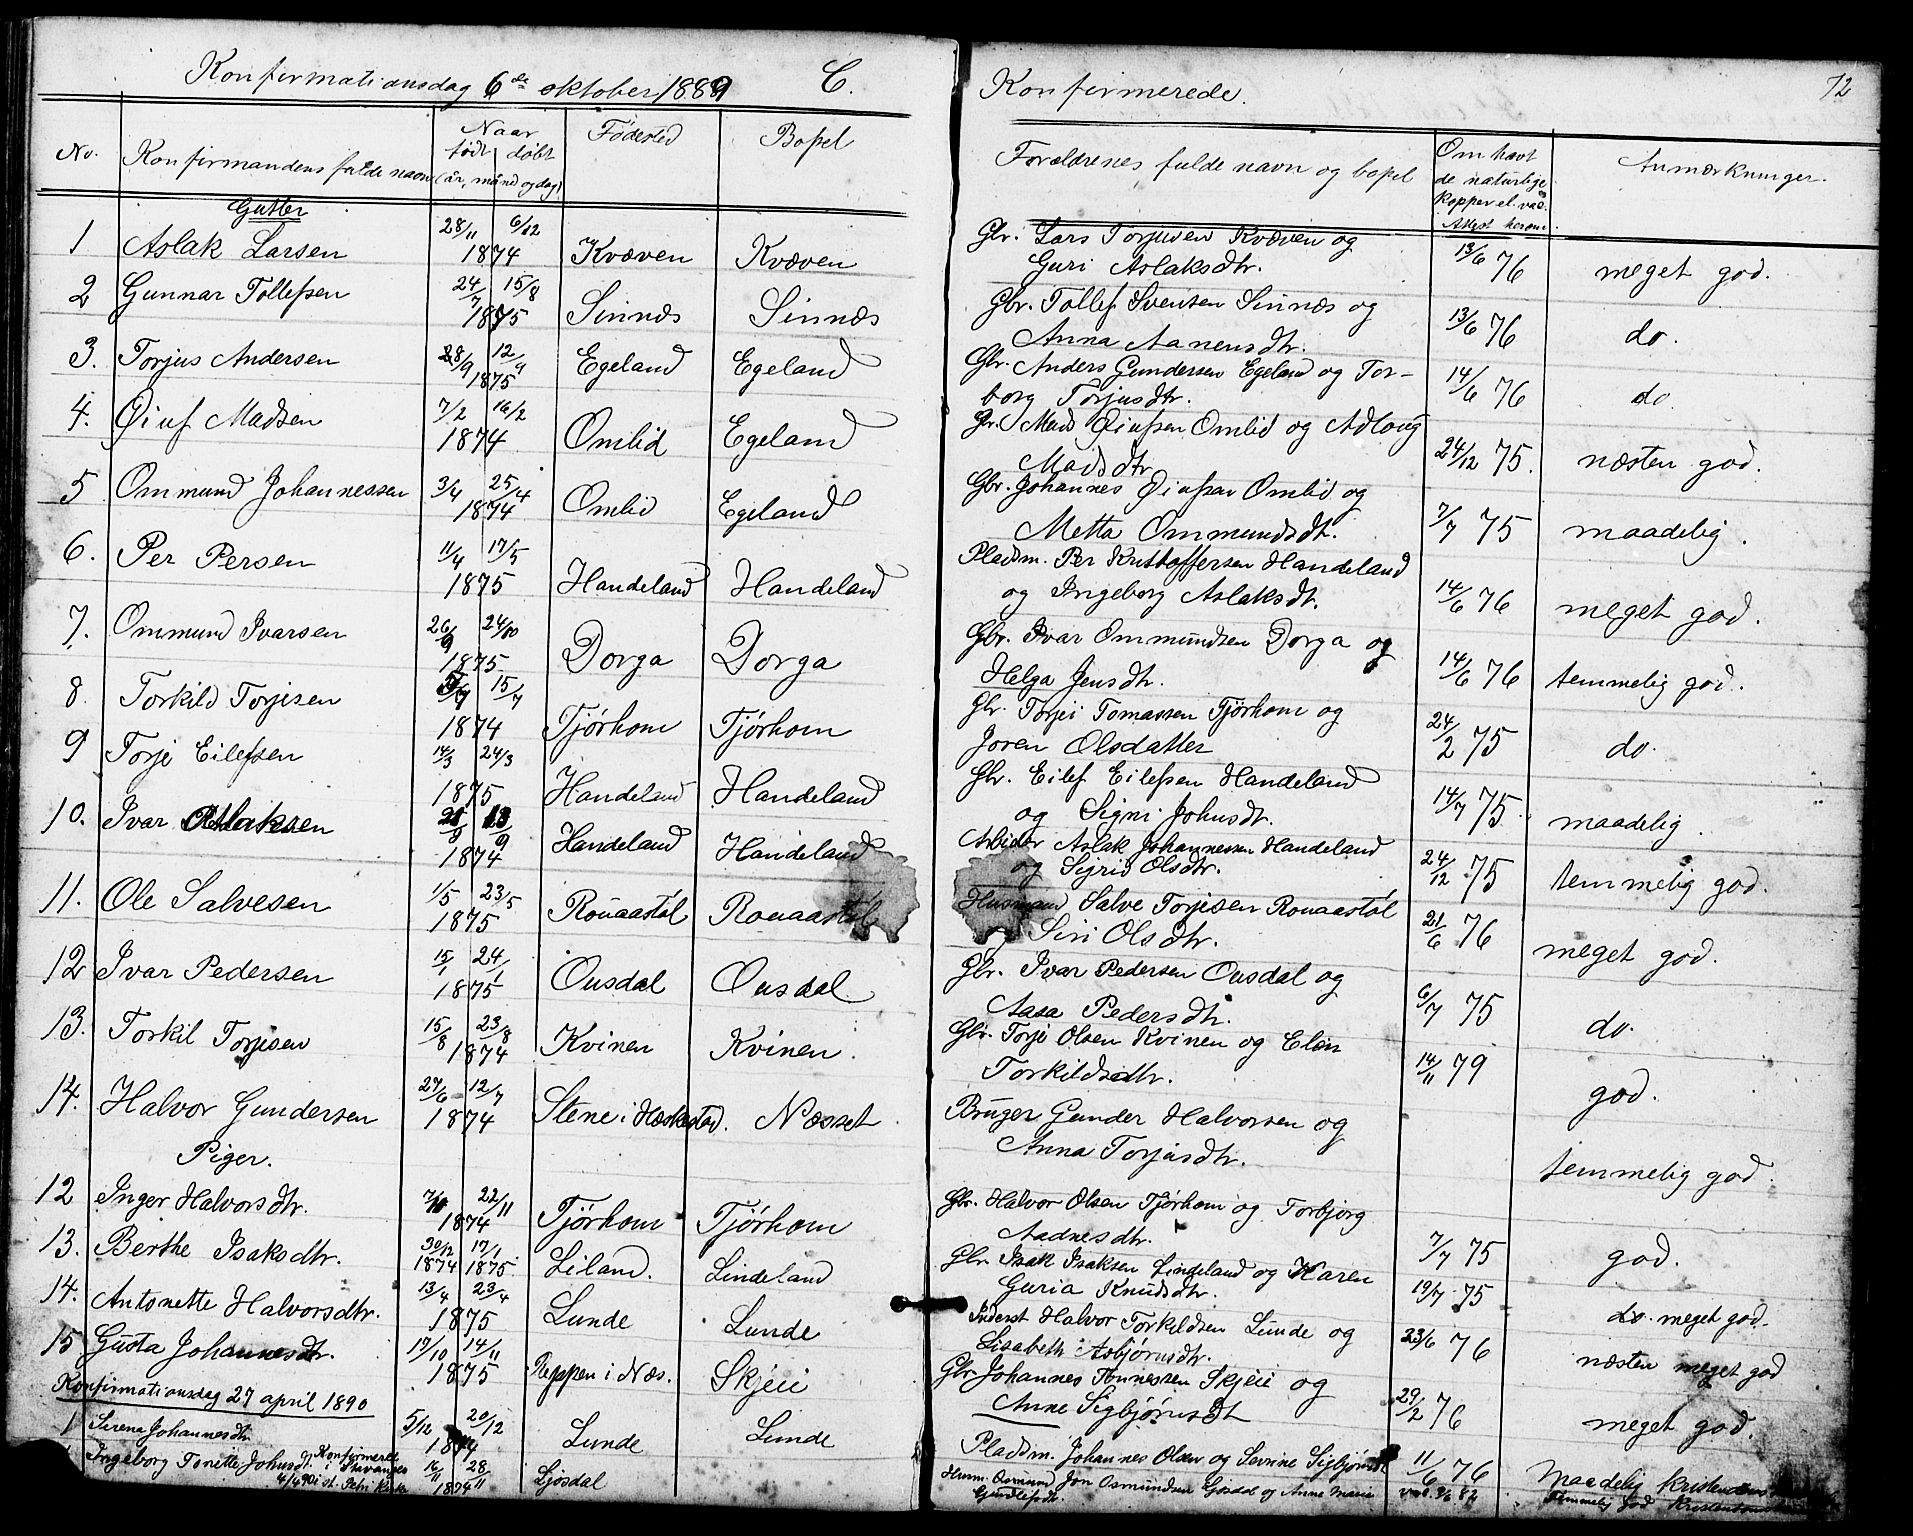 Konfirmationsdag 6de oktober 1889 C.
No. Konfirmandens fulde navn Naar født døbt (år, måned og dag) Fødested Bopel
Gutter
1 Aslak Larsen 28/11 6/12 1874 Kvæven Kvæven
2 Gunnar Tollefsen 24/7 15/8 1875 Sinnæs Sinnæs
3. Torjus Andersen 28/9 12/9 1875 Egeland Egeland
4. Øiuf Madsen 7/2 16/2 1874 Omlid Egeland
5 Ommund Johannessen 3/4 25/4 1874 Omlid Egeland
6. Per Persen 11/4 17/5 1875 Handeland Handeland
7. Ommund Ivarsen 26/9 24/10 1875 Dorga Dorga
8. Torkild Torjisen 15/7 1874 Tjørhom Tjørhom
9 Torje Eilefsen 14/3 24/3 1875 Handeland Handeland
10. Ivar Aslaksen 1874 Handeland Handeland
11. Ole Salvesen 1/5 23/5 1875 Rouaastøl Rouaastøl
12 Ivar Pedersen 15/1 24/1 1875 Ousdal Ousdal
13. Torkil Torjisen 15/8 23/8 1874 Kvinen Kvinen.
14. Halvor Gundersen 27/6 12/7 1874 Stene i Heskestad. Næsset
Piger.
12 Inger Halvorsdtr. 7/10 22/11 1874 Tjørhom Tjørhom
13. Berthe Isaksdtr. 30/12 1874 17/1 1875 Liland. Lindeland
14. Antonette Halvorsdtr. 13/4 23/4 1875 Lunde Lunde
15 Gusta Johannesdtr. 17/10 14/11 1875 Reppen i Næs. Skjeie
Konfirmationsdag 27 april 1890
1 Serena Johannesdtr 5/12 20/12 1874 Lunde Lunde
Ingeborg Tonette Johnsdt. Konfirmeret i Stavanger 4/4 90 i st. Petri Kirke 16/11 28/11 1874 Ljosdal
Konfirmerede. 72
Forældrenes fulde navn og bopel Om havt de naturlige kopper el. vac. Attest herom. Anmærkninger.
Gbr. Lars Torjusen Kvæven og
Guri Aslaksdtr. 13/6 76 meget god.
Gbr. Tollef Svensen Sinnæs og
Anna Aanensdtr. 13/6 76 do.
Gbr. Anders Gundersen Egeland og Tor-
borg Torjusdtr. 14/6 76 do.
Gbr. Mads Øiufsen Omlid og Adloug
Madsdtr 24/12 75. næsten god.
Gbr. Johannes Øiufsen Omlid og
Metta Ommundsdt. 7/7 75 maadelig.
Pladsm. Per Kristoffersen Handeland
og Ingeborg Aslaksdt. 14/6 76 meget god.
Gbr. Ivar Ommundsen Dorga og
Helga Jensdtr. 14/6 76 temmelig god.
Gbr. Torjei Tomassen Tjørhom og
Joren Olsdatter 24/2 75 do.
Gbr. Eilef Eilefsen Handeland
og Signi Johnsdtr. 14/7 75. maadelig.
Arbider Aslak Johannessen Handeland
og Sigrid Olsdtr. 24/12 75 temmelig god.
Husmand Salve Torjisen Rouaastøl
Siri Olsdtr. 21/6 76 meget god.
Gbr. Ivar Pedersen Ousdal og
Aasa Pedersdtr. 6/7 75 do.
Gbr. Torje Olsen Kvinen og Elen
Torkildsdtr. 14/11 79 god.
Bruger Gunder Halvorsen og
Anna Torjusdtr. temmelig god.
Gbr. Halvor Olsen Tjørhom og Torbjørg
Aadnesdtr. 7/7 75 god.
Gbr. Isak Isaksen Lindeland og Karen
Guria Knudsdtr. 19/7 75 do. meget god.
Inderst Halvor Torkildsen Lunde og
Lisabeth Asbjørnsdtr. 23/6 76 næsten meget god
Gbr. Johannes Tønnessen Skjeie og
Anne Sigbjørnsdt 29/2 76 meget god.
Pladsm. Johannes Olsen og Sevrine Sigbjørnsdt 11/6 76 Maadelig kristendoms
Husm. Osmund Jon Osmundsen Gjosdal og Anne Marie
Gundlefsdtr. vac. 9/6 82 Temmelig god Kristendoms